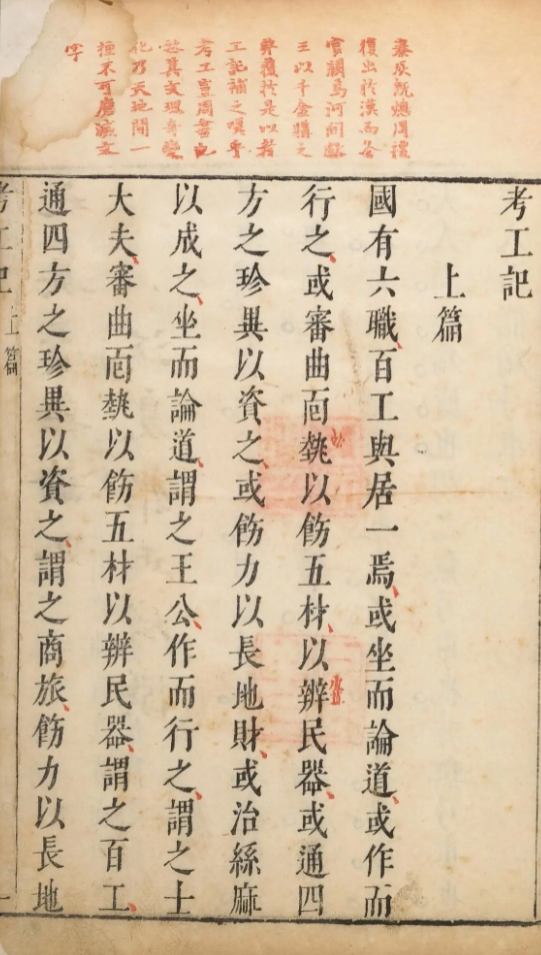 秦灰既熄周禮
復出於漢而冬
官闕焉河間獻
王以千金購之
弗獲於是以考
工記補之嗟乎
考工豈周書也
然其文瑰奇變
化乃天地間一
種不可磨滅文
字
考工記
上篇
國有六職、百工與居一焉、或坐而論道、或作而
行之、或審曲面埶以飭五材、以辨民器、或通四
方之珍異以資之、或飭力以長地財、或治絲麻
以成之、坐而論道、謂之王公、作而行之、謂之士
大夫、審曲面埶以飭五材以辨民器、謂之百工、
通四方之珍異以資之、謂之商旅、飭力以長地
考工記 上篇 一